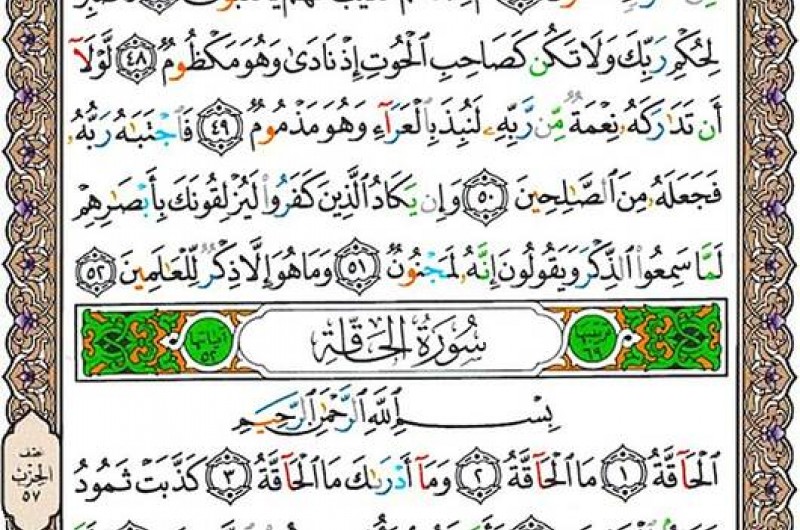 لِحُكْمِ رَبِّكَ وَلَا تَكُن كَصَاحِبِ الْحُوتِ إِذْ نَادَىٰ وَهُوَ مَكْظُومٌ ٤٨ لَّوْلَآ
أَن تَدَٰرَكَهُۥ نِعْمَةٌ مِّن رَّبِّهِۦ لَنُبِذَ بِالْعَرَآءِ وَهُوَ مَذْمُومٌ ٤٩ فَاجْتَبَٰهُ رَبُّهُۥ
فَجَعَلَهُۥ مِنَ الصَّٰلِحِينَ ٥٠ وَإِن يَكَادُ الَّذِينَ كَفَرُوا لَيُزْلِقُونَكَ بِأَبْصَٰرِهِمْ
لَمَّا سَمِعُوا الذِّكْرَ وَيَقُولُونَ إِنَّهُۥ لَمَجْنُونٌ ٥١ وَمَا هُوَ إِلَّا ذِكْرٌ لِّلْعَٰلَمِينَ ٥٢
ترتيبها ٦٩ سُورَةُ الحَاقَّةِ آياتها ٥٢
بِسْمِ اللَّهِ الرَّحْمَٰنِ الرَّحِيمِ
الْحَآقَّةُ ١ مَا الْحَآقَّةُ ٢ وَمَآ أَدْرَىٰكَ مَا الْحَآقَّةُ ٣ كَذَّبَتْ ثَمُودُ
نصف
الحزب
٥٧